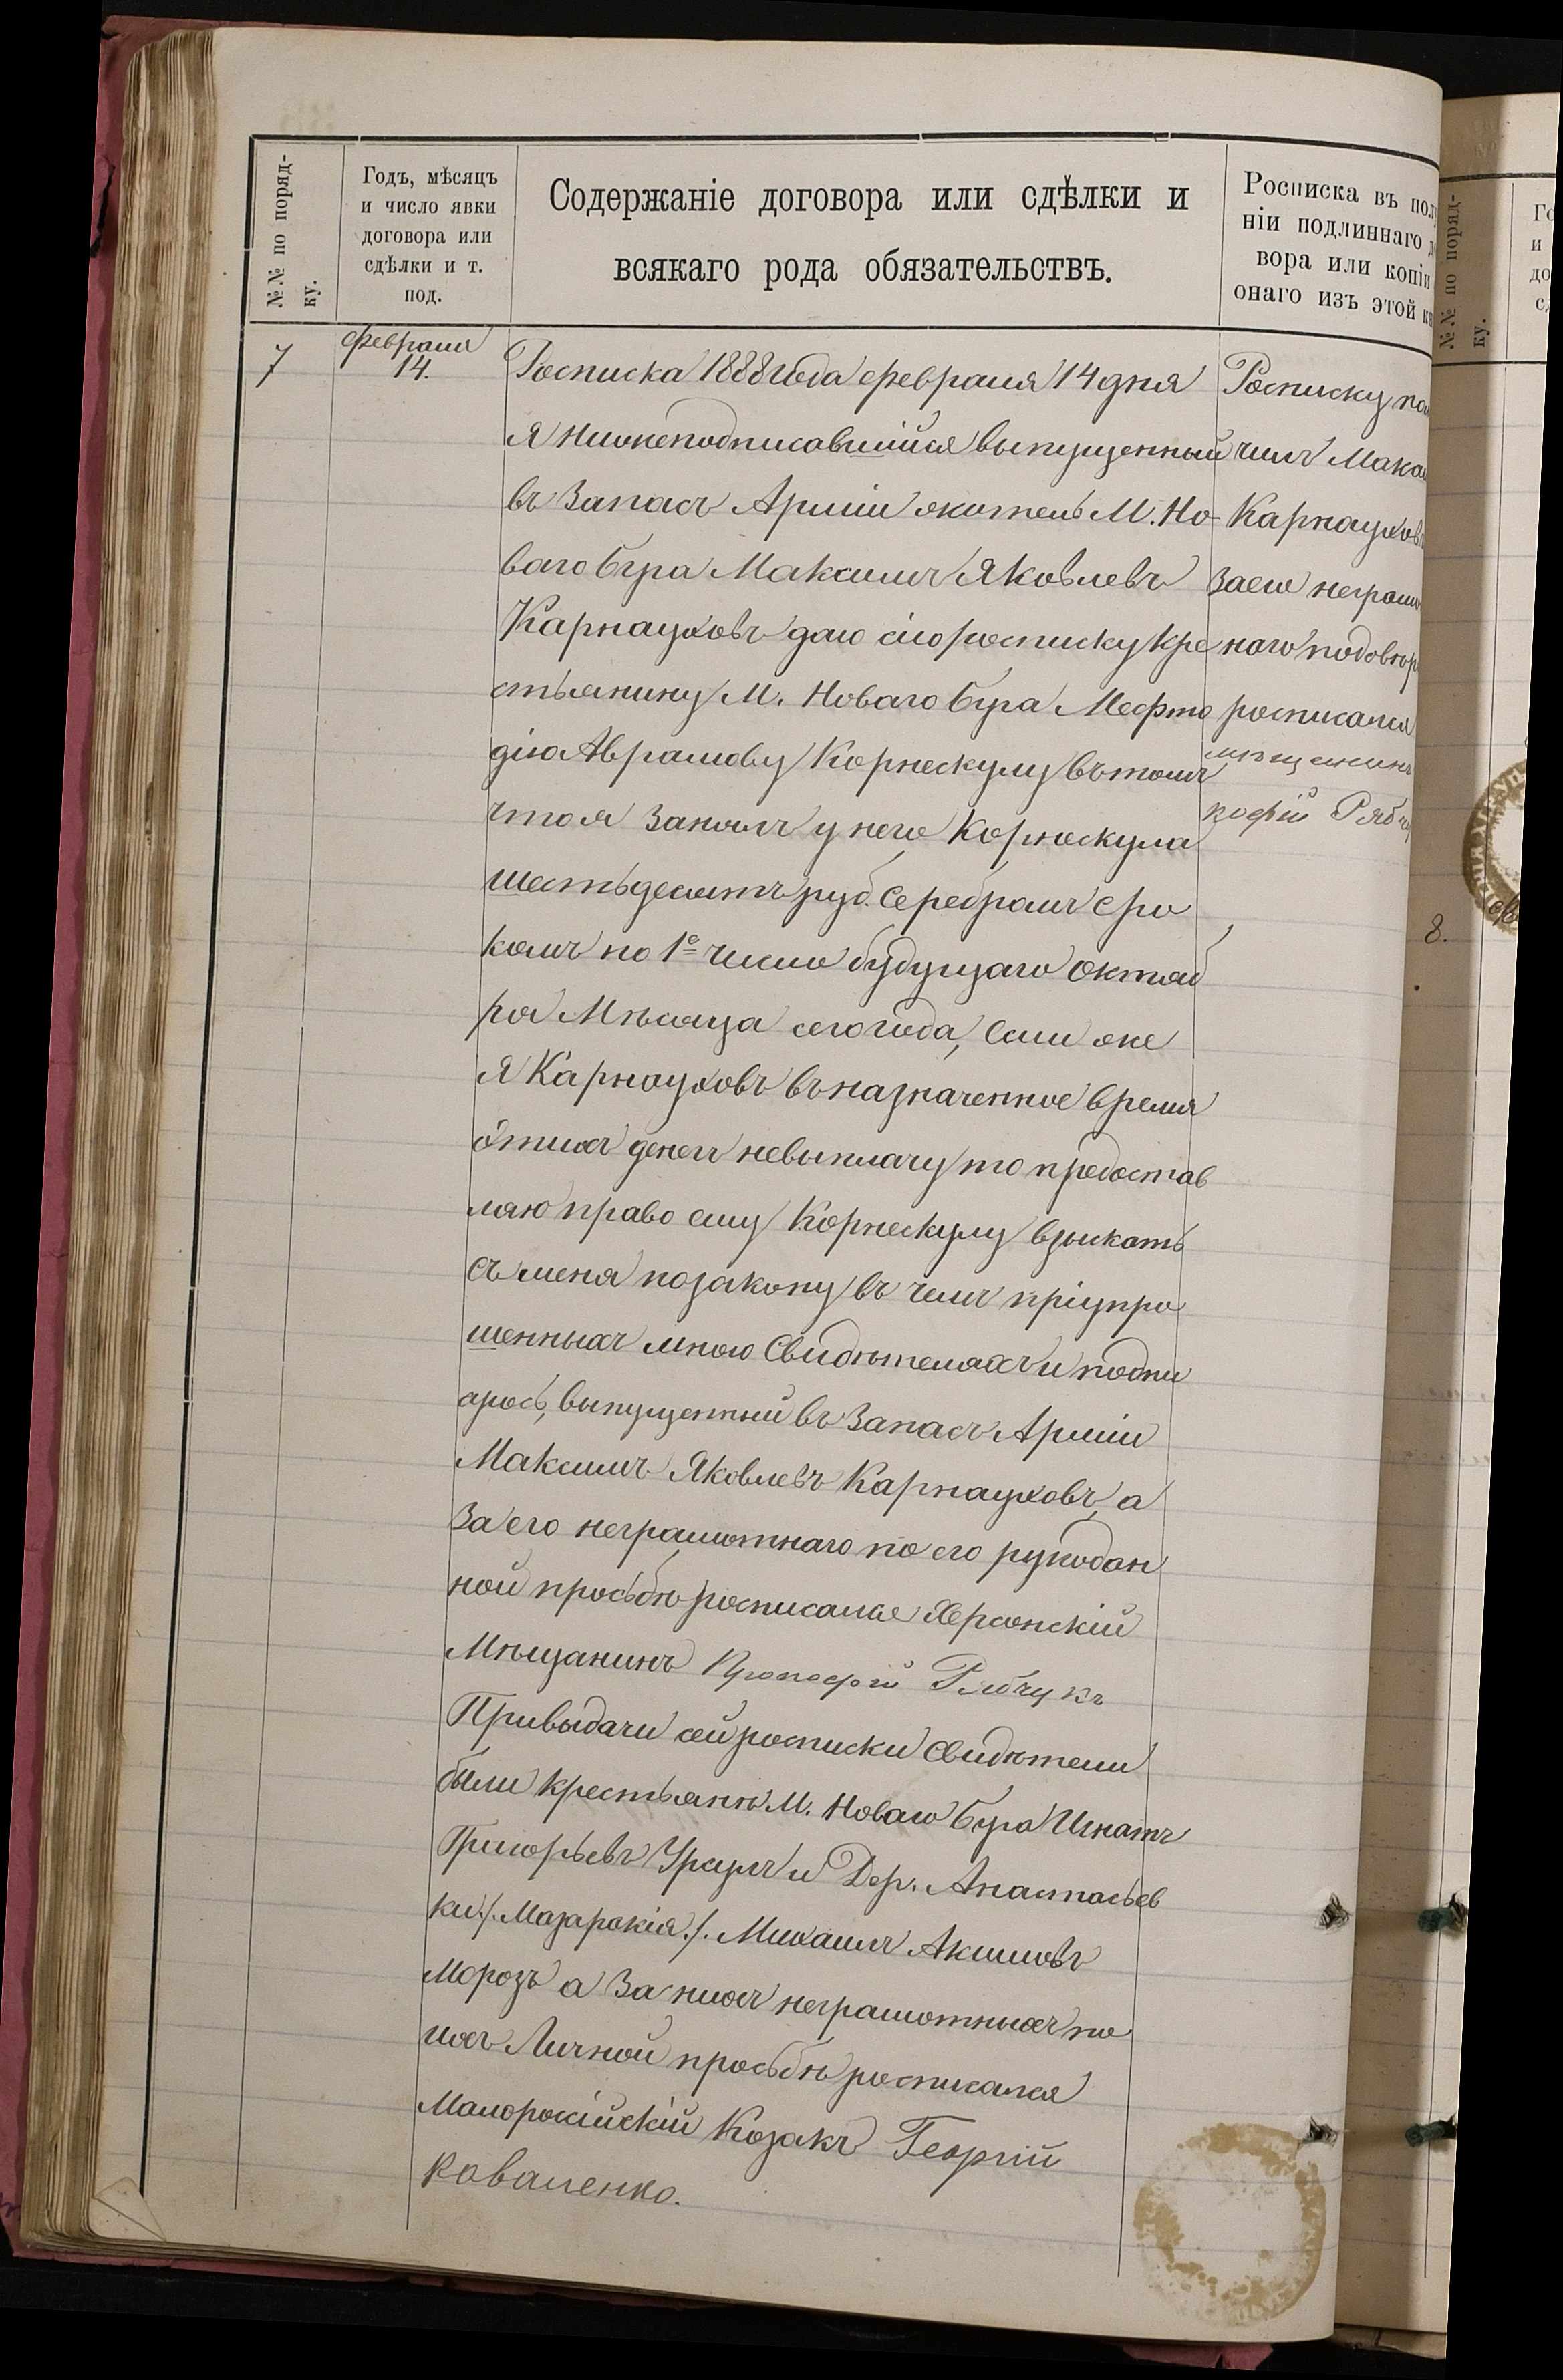 №№ по поряд-
ку.
Годъ, мѣсяцъ
и число явки
договора или
сдѣлки и т.
под.
Содержаніе договора или сдѣлки и
всякаго рода обязательствъ.
Росписка въ пол
ніи подлиннаго д
вора или копіи
онаго изъ этой кн
7
февраля
14.
Росписка 1888 года февраля 14 дня
я нижеподписавшійся выпущенный
въ Запасъ Арміи житель М. Но-
ваго Буга Максимъ Яковлевъ
Карнауховъ даю сію росписку кре
стьянину М. Новаго Буга Мефто
дію Аврамову Корнескулу въ томъ
что я занялъ у него Корнескула
шестьдесятъ руб. серебромъ сро
комъ по 1е число будущаго октяб
ря Мѣсяца сего года, если же
я Карнауховъ въ назначенное время
этихъ денегъ невыплачу то предостав
ляю право ему Корнескулу взыскать
съ меня позакону въ чемъ пріупро
шенныхъ мною Свидѣтеляхъ и подпи
суюсь, выпущенный въ Запасъ Арміи
Максимъ Яковлевъ Карнауховъ, а
За его неграмотнаго по его рукодан
ной просьбѣ росписался Херсонскій
Мѣщанинъ Прокофій Рябчукъ
Привыдачи сей росписки Свидѣтели
были крестьяне М. Новаго Буга Игнатъ
Григорьевъ Урсулъ и Дер. Анастасьев
ки /. Мазаракія ./. Михаилъ Акимовъ
Морозъ а За нихъ неграмотныхъ по
ихъ Личной просьбѣ росписался
Малоросійскій Козакъ Георгій
Коваленко.
Росписку по
чилъ Макси
Карнаухов
За его неграмо
наго по довѣр
росписался
мѣщанинъ
кофій Рябчу
№№ по поряд-
ку.
Го
и
до
сд
8.